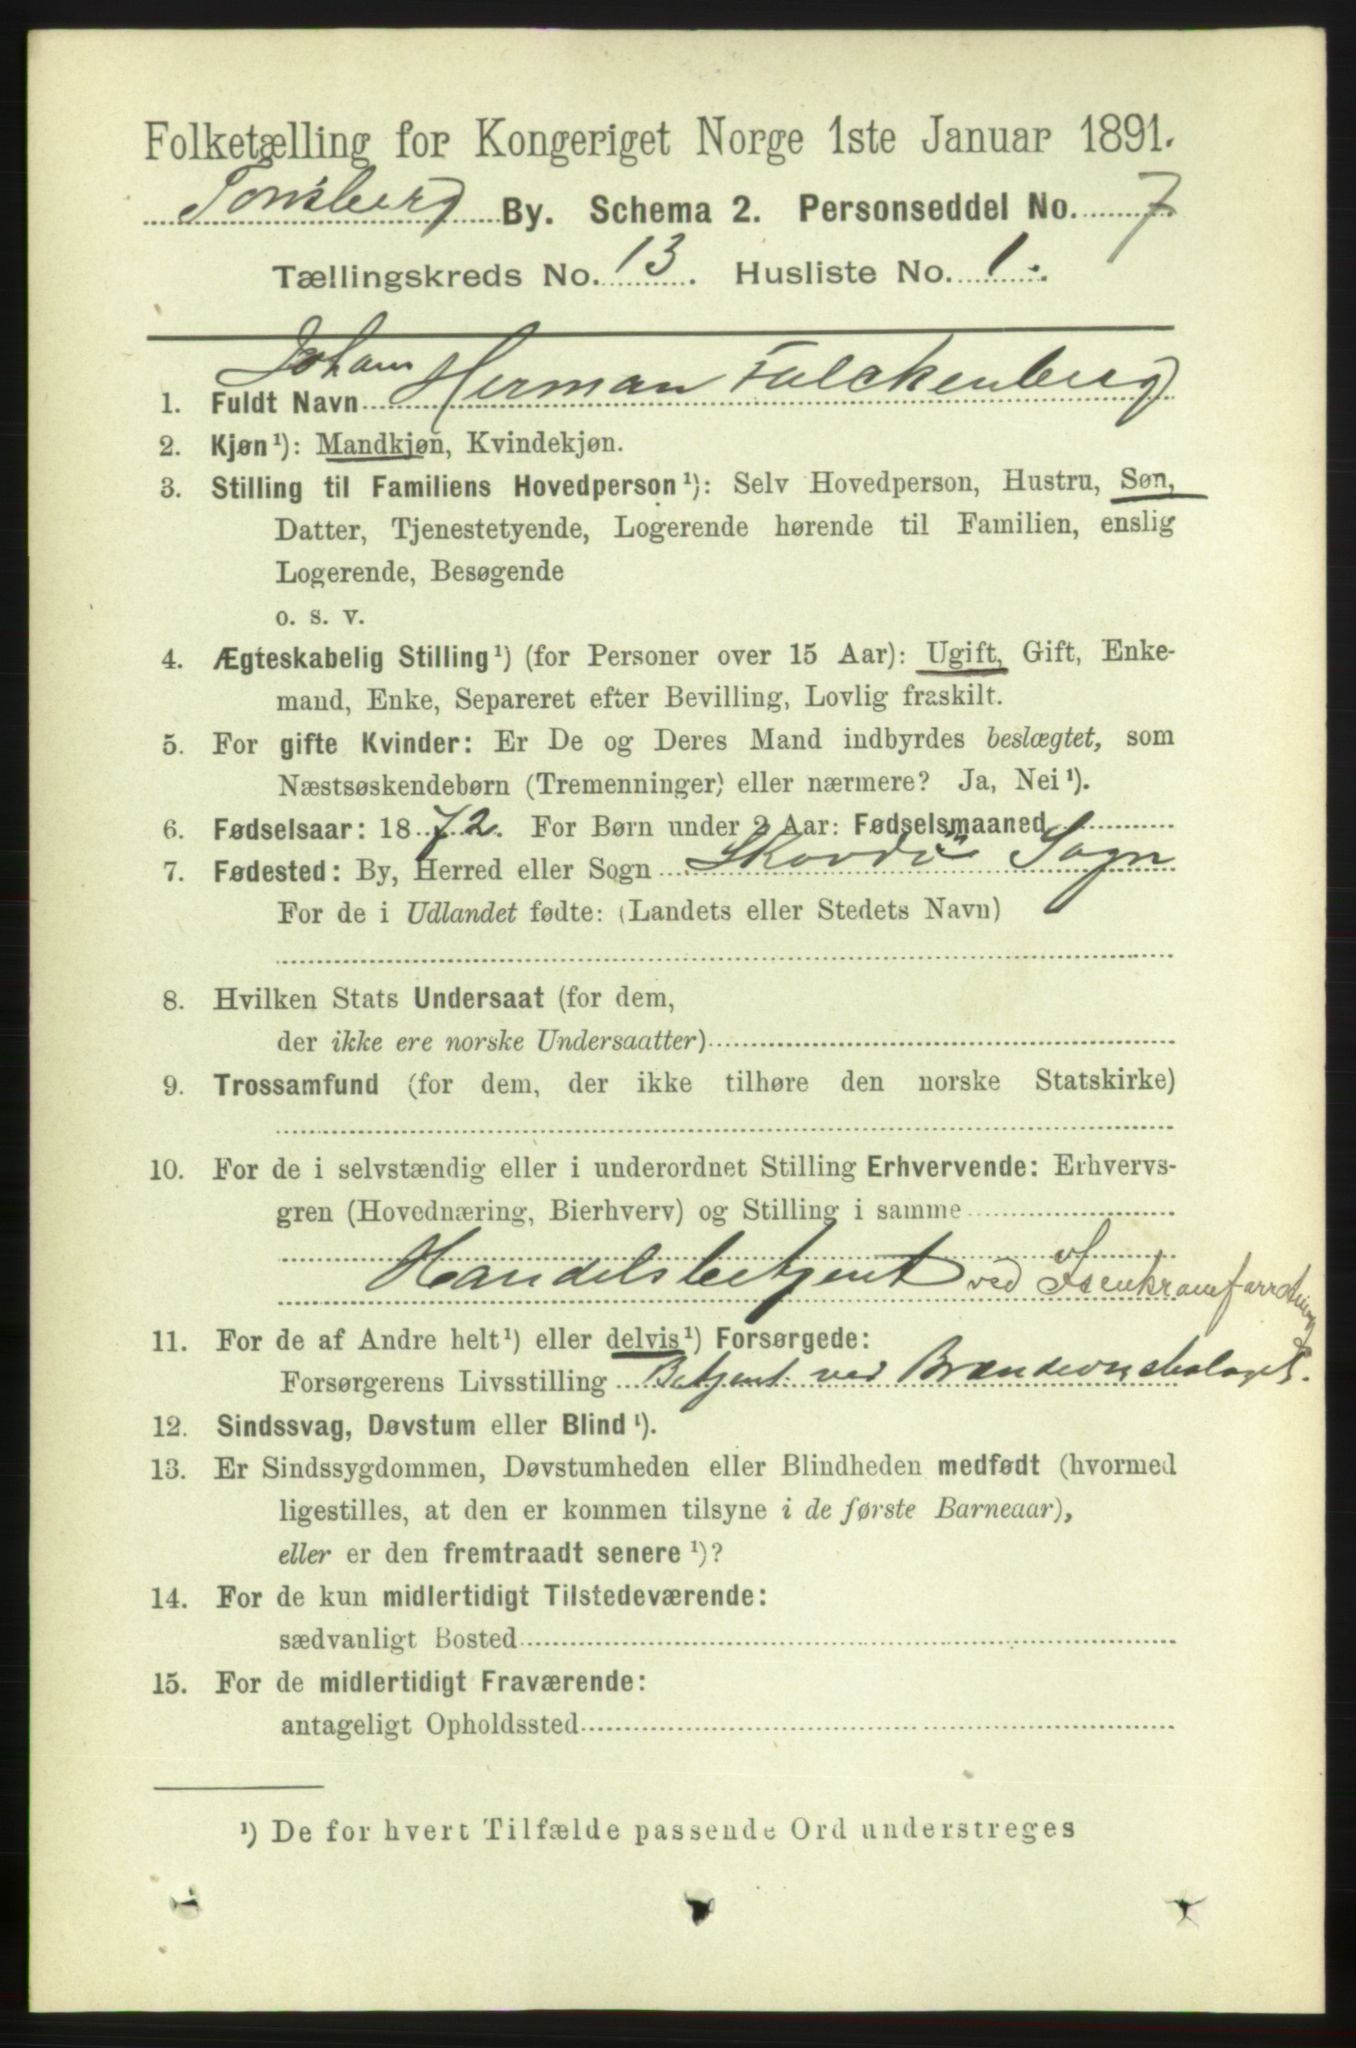 Folketælling for Kongeriget Norge 1ste Januar 1891.
Tønsberg By. Schema 2. Personseddel No. 7
Tællingskreds No. 13. Husliste No. 1.
Johan
1. Fuldt Navn Herman Falckenberg
2. Kjøn¹): Mandkjøn, Kvindekjøn.
3. Stilling til Familiens Hovedperson¹): Selv Hovedperson, Hustru, Søn,
Datter, Tjenestetyende, Logerende hørende til Familien, enslig
Logerende, Besøgende
o. s. v.
4. Ægteskabelig Stilling¹) (for Personer over 15 Aar): Ugift, Gift, Enke-
mand, Enke, Separeret efter Bevilling, Lovlig fraskilt.
5. For gifte Kvinder: Er De og Deres Mand indbyrdes beslægtet, som
Næstsøskendebørn (Tremenninger) eller nærmere? Ja, Nei¹).
6. Fødselsaar: 1872. For Børn under 2 Aar: Fødselsmaaned
7. Fødested: By, Herred eller Sogn Sogn
For de i Udlandet fødte: (Landets eller Stedets Navn)
8. Hvilken Stats Undersaat (for dem,
der ikke ere norske Undersaatter)
9. Trossamfund (for dem, der ikke tilhøre den norske Statskirke)
10. For de i selvstændig eller i underordnet Stilling Erhvervende: Erhvervs-
gren (Hovednæring, Bierhverv) og Stilling i samme
Handelsbetjent ved Isenkramforretning
11. For de af Andre helt¹) eller delvis¹) Forsørgede:
Forsørgerens Livsstilling Betjent ved
12. Sindssvag, Døvstum eller Blind¹).
13. Er Sindssygdommen, Døvstumheden eller Blindheden medfødt (hvormed
ligestilles, at den er kommen tilsyne i de første Barneaar),
eller er den fremtraadt senere¹)?
14. For de kun midlertidigt Tilstedeværende:
sædvanligt Bosted
15. For de midlertidigt Fraværende:
antageligt Opholdssted
¹) De for hvert Tilfælde passende Ord understreges